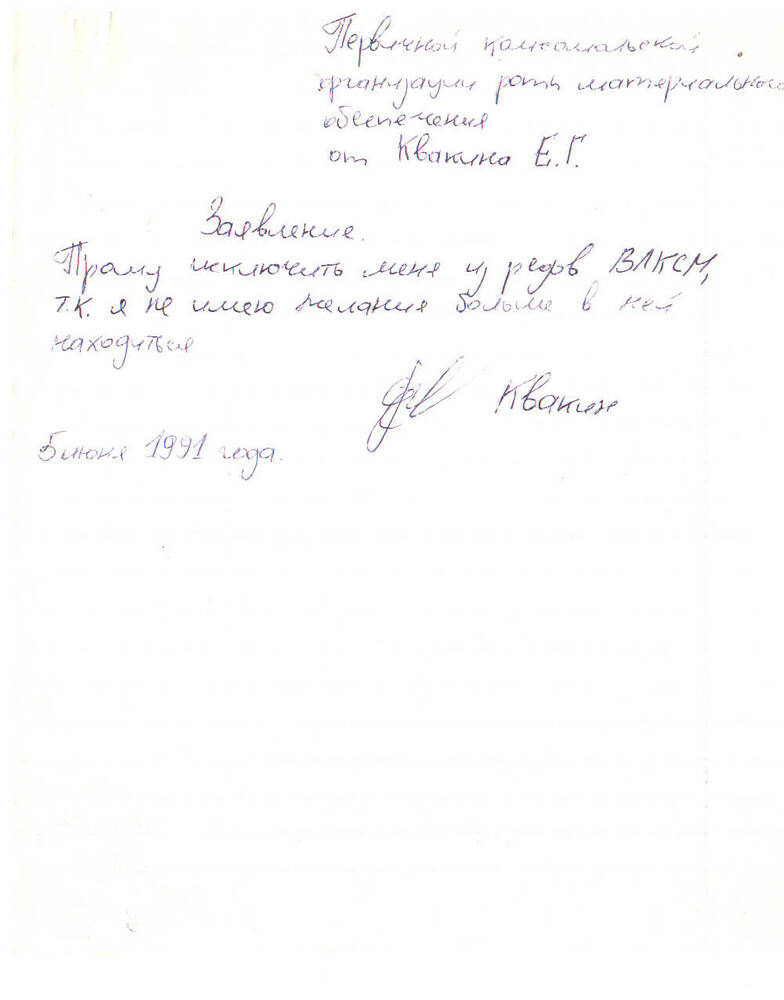 Первичной комсомольской
организации роты материального
обеспечения
от Квакина Е.Г.
Заявление.
Прошу исключить меня из рядов ВЛКСМ,
т.к. я не имею желания больше в ней
находиться
Квакин
5 июня 1991 года.